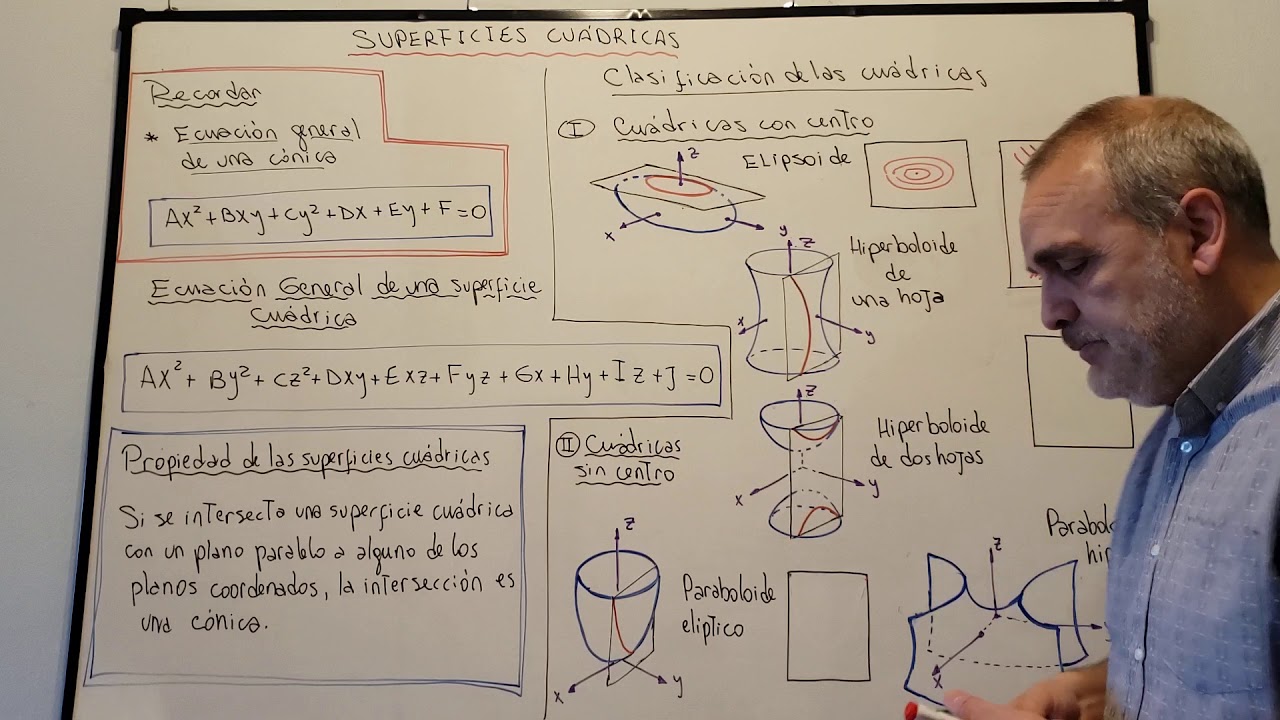 SUPERFICIES CUÁDRICAS
Recordar
* Ecuación general
de una cónica
Ax²+Bxy+Cy²+Dx+Ey+F=0
Ecuación General de una superficie
Cuádrica
Ax²+By²+Cz²+Dxy+Exz+Fyz+Gx+Hy+Iz+J=0
Propiedad de las superficies cuádricas
Si se intersecta una superficie cuádrica
con un plano paralelo a alguno de los
planos coordenados, la intersección es
una cónica.
Clasificación de las cuádricas
I Cuádricas con centro
z
Elipsoide
x
y
z
Hiperboloide
de
una hoja
x
y
z
Hiperboloide
de dos hojas
x
y
II Cuádricas
sin centro
z
Paraboloide
elíptico
x
y
z
x